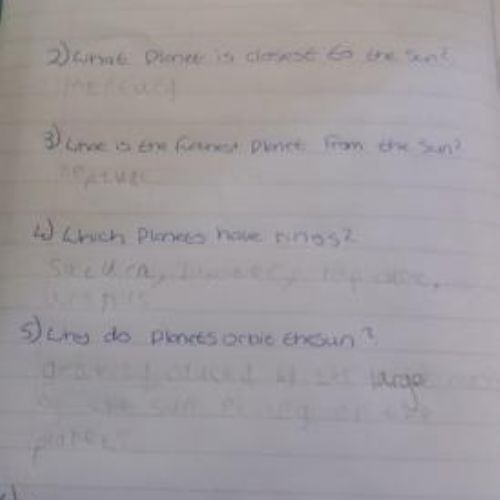 2) What Planet is closest to the Sun?
Mercury
3) What is the furthest planet from the Sun?
neptune
4) Which Planets have rings?
Saturn, neptune,
5) Why do planets orbit the sun?
large
of the sun on the
planets